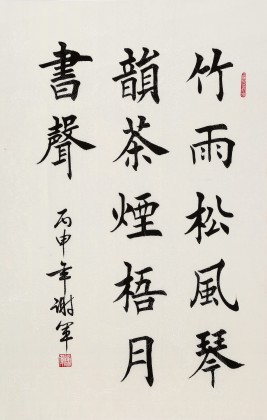 竹雨松風琴
韻茶煙梧月
書聲
丙申年謝軍